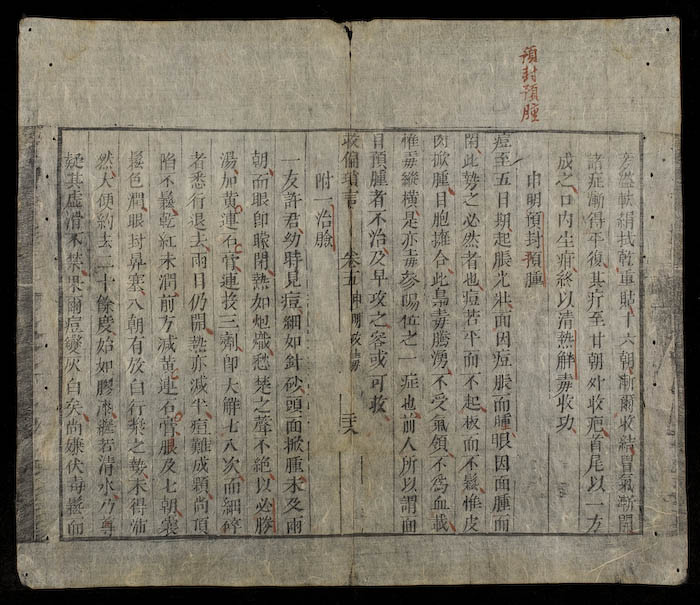 預封預腫
諸症漸得平復其疔至廿朝外收疤首尾以一方
成之口内生疳終以清熱解毒收功
申明預封預腫
痘至五日期起脹光壯面因痘脹而腫眼因面腫而
閉此勢之必然者也痘若平而不起板而不鬆惟皮
肉掀腫目胞攡合此梟毒騰湧不受氣領不爲血載
惟毒縱橫是亦毒參陽位之一症也前人所以謂面
目預腫者不治及早攻之容或可救
救偏瑣言 卷五
附一治驗
一友許君幼時見痘細如針砂頭面掀腫未及兩
朝而眼即矇閉熱如炮熾愁楚之聲不絶以必勝
湯加黄連石膏連投三劑即大解七八次而細碎
者悉行退去兩日仍開熱亦減半痘難成顆尚頂
陷不鬆乾紅未潤前方減黄連石膏服及七朝囊
鬆色潤眼封鼻塞八朝有放白行漿之勢未得沛
然大便約去二十餘度始如膠
疑其虚滑不禁果爾痘變灰白矣尚嫌伏毒